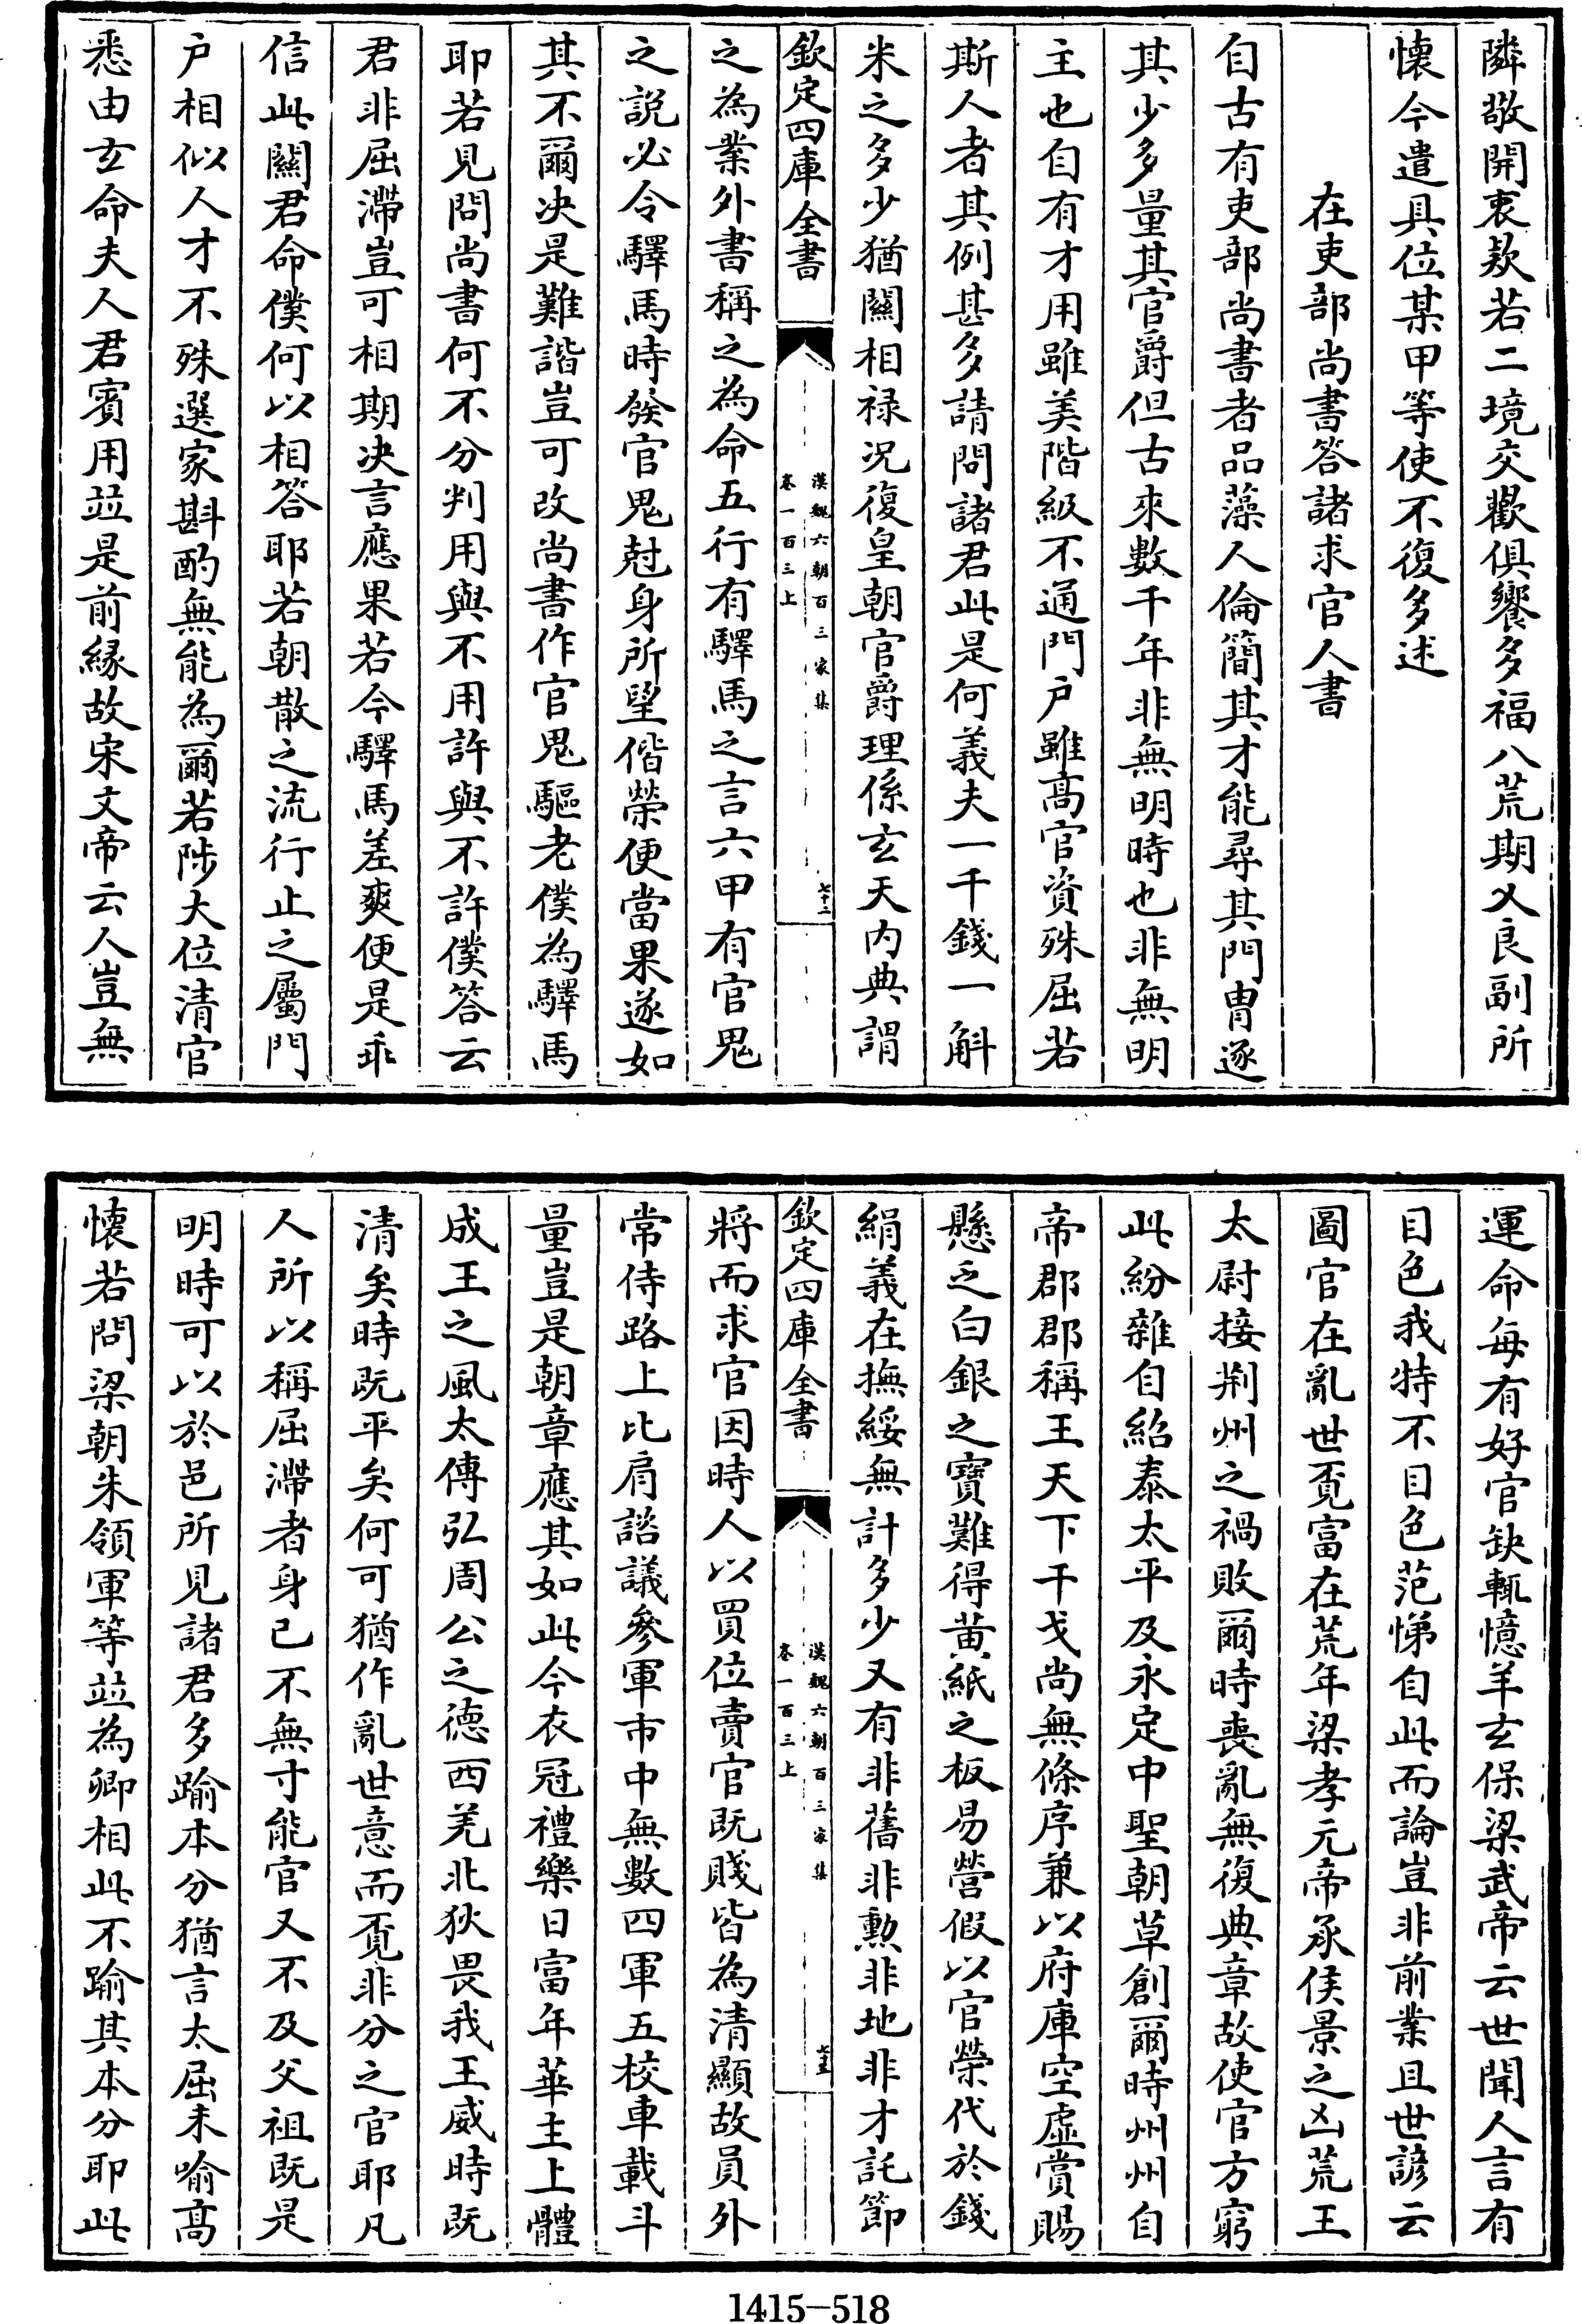 隣敬開衷欵若二境交歡俱饗多福八荒期乂良副所
懐今遣具位某甲等使不復多述
在吏部尚書答諸求官人書
自古有吏部尚書者品藻人倫簡其才能尋其門胄逐
其少多量其官爵但古來數千年非無明時也非無明
主也自有才用雖美階級不通門户雖髙官資殊屈若
斯人者其例甚多請問諸君此是何義夫一千錢一斛
米之多少猶闗相禄况復皇朝官爵理係玄天内典謂
欽定四庫全書
漢魏六朝百三家集
卷一百三上
七十二
之為業外書稱之為命五行有驛馬之言六甲有官鬼
之説必令驛馬時發官鬼尅身所望偕榮便當果遂如
其不爾决是難諧豈可改尚書作官鬼驅老僕為驛馬
耶若見問尚書何不分判用與不用許與不許僕答云
君非屈滯豈可相期决言應果若今驛馬差爽便是乖
信此闗君命僕何以相答耶若朝散之流行止之屬門
户相似人才不殊選家斟酌無能為爾若陟大位清官
悉由玄命夫人君賓用並是前縁故宋文帝云人豈無
運命每有好官缺輒憶羊玄保梁武帝云世聞人言有
目色我特不目色范悌自此而論豈非前業且世諺云
圖官在亂世覓富在荒年梁孝元帝承侯景之凶荒王
太尉接荆州之禍敗爾時喪亂無復典章故使官方窮
此紛雜自紹泰太平及永定中聖朝草創爾時州州自
帝郡郡稱王天下干戈尚無條序兼以府庫空虚賞賜
懸乏白銀之寶難得黄紙之板易營假以官榮代於錢
絹義在撫綏無計多少又有非舊非勲非地非才託節
欽定四庫全書
漢魏六朝百三家集
卷一百三上
七十三
將而求官因時人以買位賣官既賤皆為清顯故員外
常侍路上比肩諮議參軍市中無數四軍五校車載斗
量豈是朝章應其如此今衣冠禮樂日富年華主上體
成王之風太傅弘周公之德西羌北狄畏我王威時既
清矣時既平矣何可猶作亂世意而覓非分之官耶凡
人所以稱屈滯者身已不無寸能官又不及父祖既是
明時可以於邑所見諸君多踰本分猶言太屈未喻髙
懷若問梁朝朱領軍等並為卿相此不踰其本分耶此
1415-518